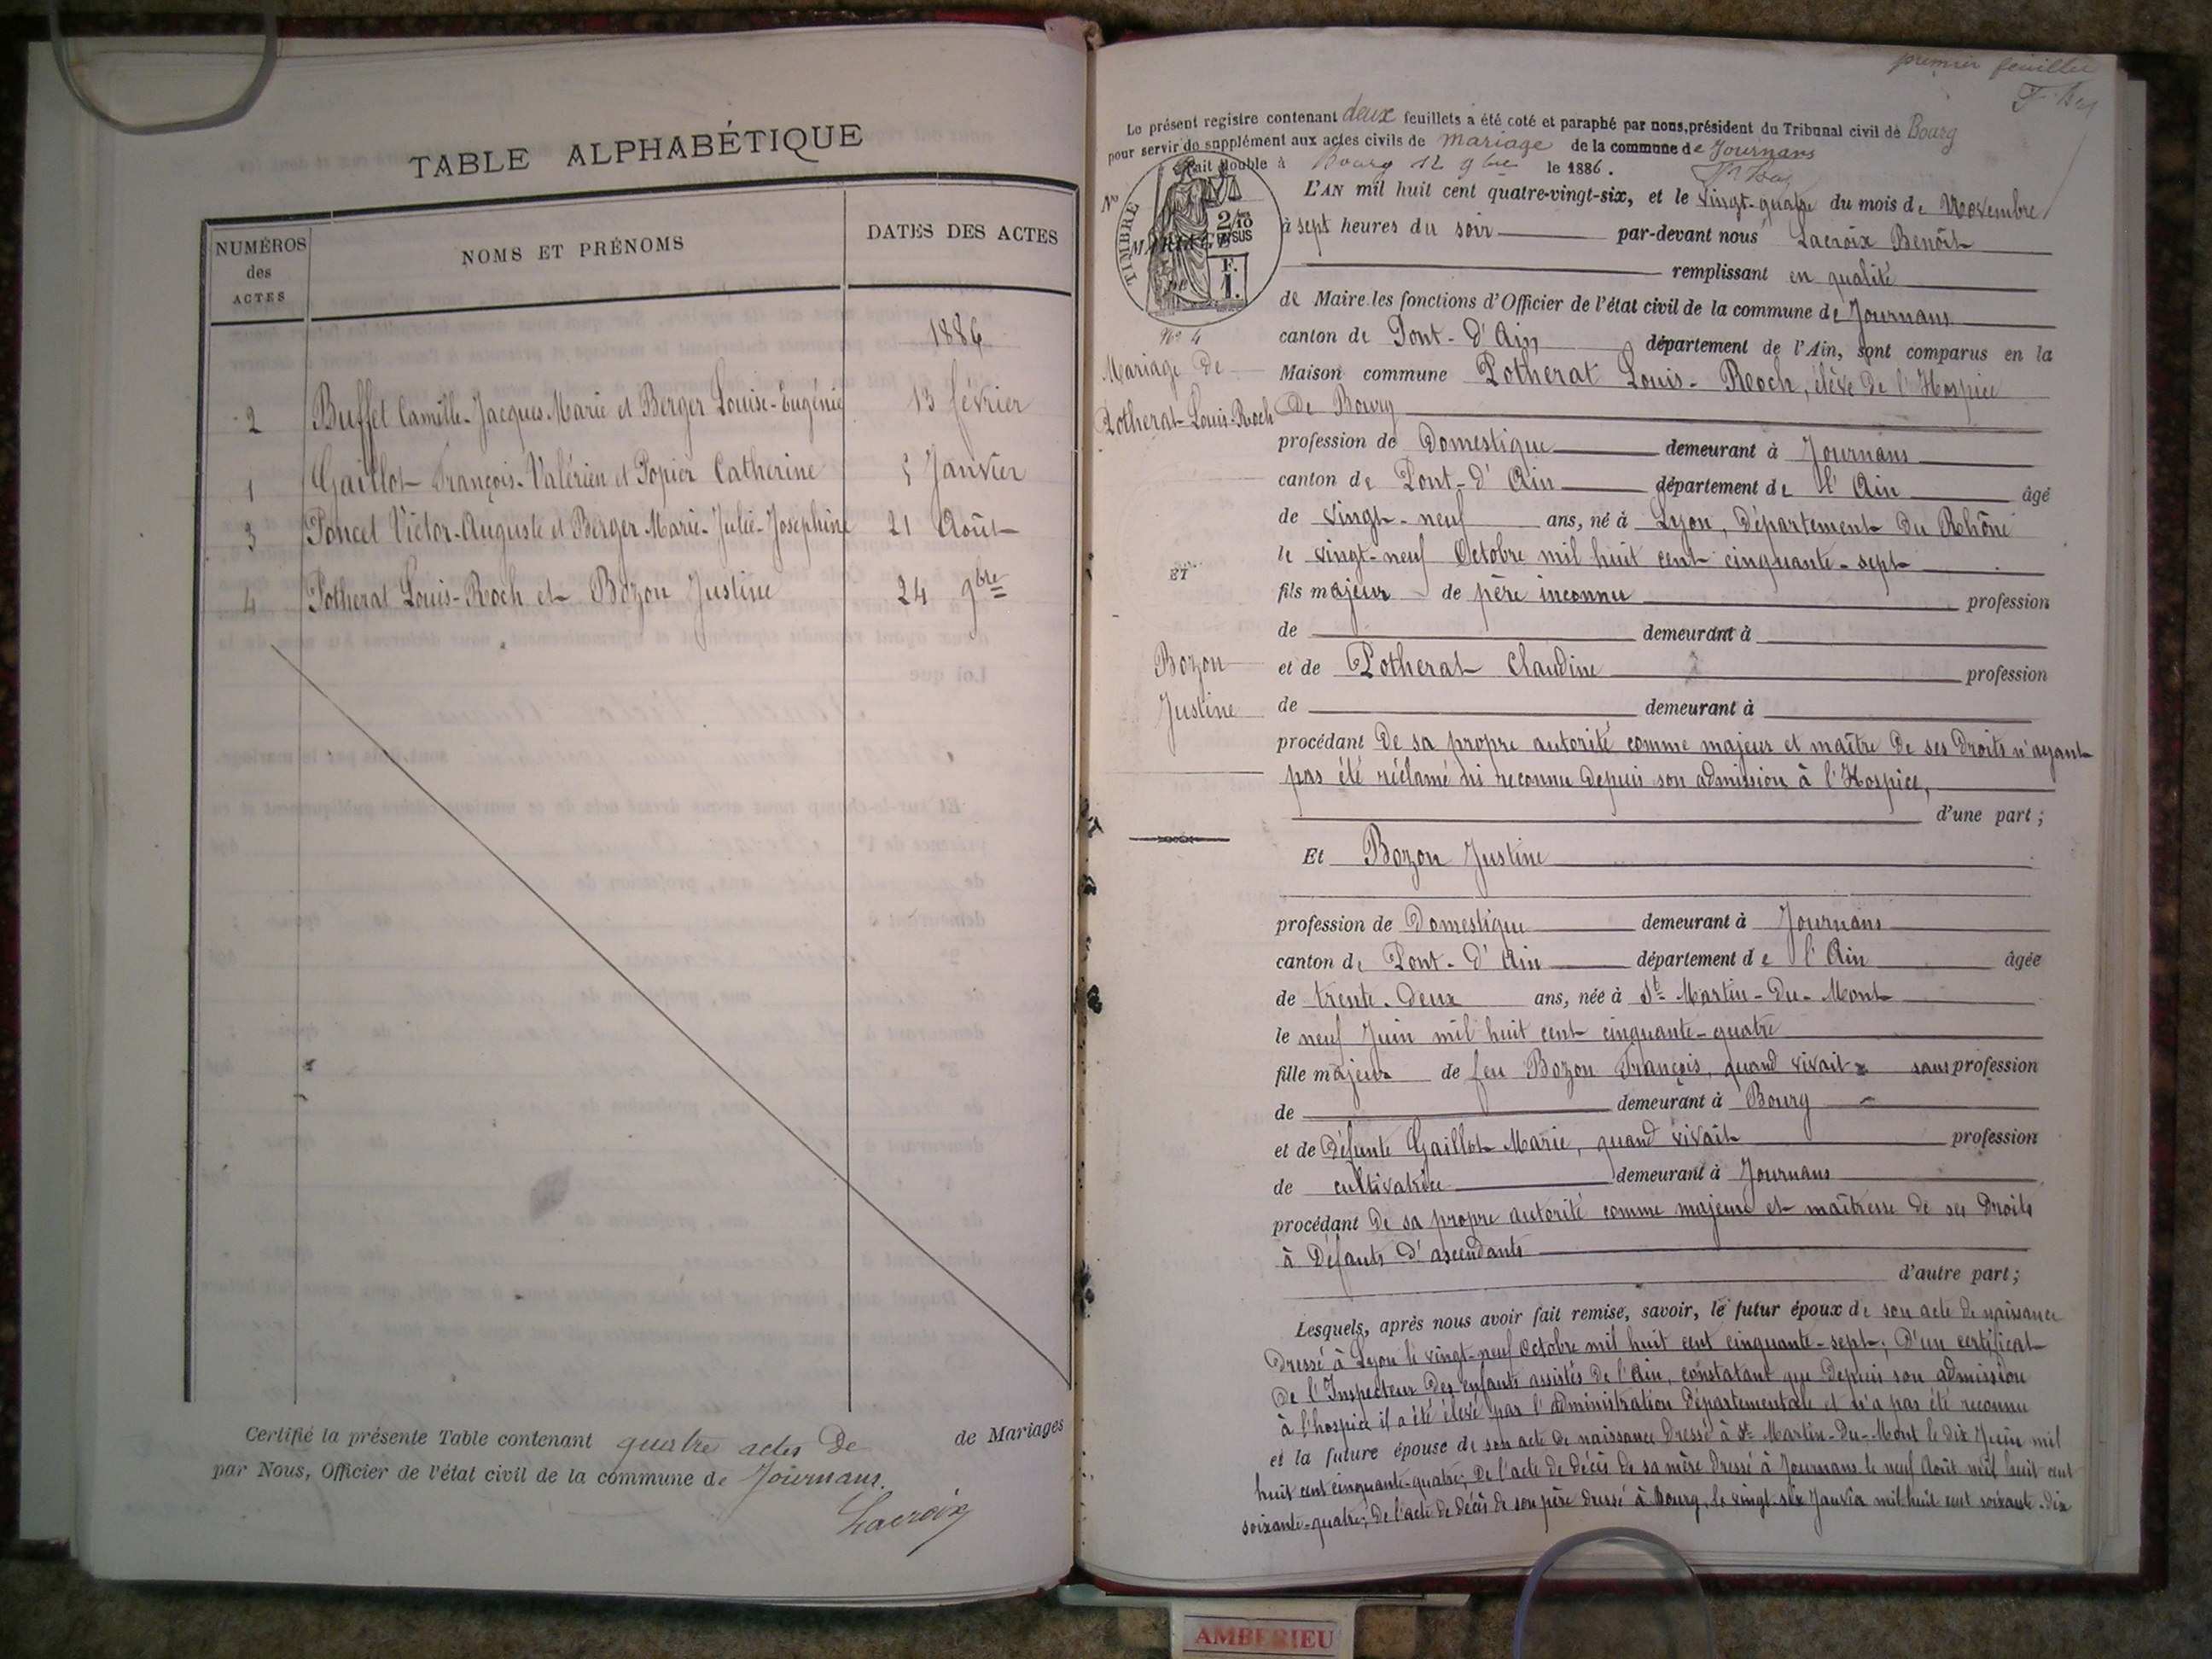 TABLE ALPHABÉTIQUE
NUMÉROS des ACTES
NOMS ET PRÉNOMS
DATES DES ACTES
1886
2 Buffet Camille-Jacques-Marie et Berger Louise-Eugénie 13 février
1 Gaillot François-Valérien et Popier Catherine 5 Janvier
3 Poncet Victor-Auguste et Berger Marie-Julie-Josephine 21 Août
4 Potherat Louis-Roch et Bozon Justine 24 9bre
Certifié la présente Table contenant quatre actes de de Mariages
par Nous, Officier de l'état civil de la commune de Journans.
Lacroix
premier feuillet
Le présent registre contenant deux feuillets a été coté et paraphé par nous, président du Tribunal civil de Bourg
pour servir de supplément aux actes civils de mariage de la commune de Journans
Fait double à Bourg 12 9bre le 1886.
No
TIMBRE
2/10 EN SUS
F. 1.
MARIAGE
De
No 4
Mariage De
Potherat-Louis-Roch
ET
Bozon
Justine
L'AN mil huit cent quatre-vingt-six, et le vingt-quatre du mois de Novembre
à sept heures du soir par-devant nous Lacroix Benôit
remplissant en qualité
de Maire les fonctions d'Officier de l'état civil de la commune de Journans
canton de Pont-d'Ain département de l'Ain, sont comparus en la
Maison commune Potherat Louis-Roch, élève de l'Hospice
De Bourg
profession de Domestique demeurant à Journans
canton de Pont-d'Ain département de l'Ain âgé
de vingt-neuf ans, né à Lyon, Département du Rhône
le vingt-neuf Octobre mil huit cent cinquante-sept
fils majeur de père inconnu profession
de demeurant à
et de Potherat Claudine profession
de demeurant à
procédant De sa propre autorité comme majeur et maître de ses Droits n'ayant
pas été réclamé ni reconnu depuis son admission à l'Hospice,
d'une part;
Et Bozon Justine
profession de Domestique demeurant à Journans
canton de Pont-d'Ain département de l'Ain âgée
de trente-deux ans, née à St-Martin-Du-Mont
le neuf Juin mil huit cent cinquante-quatre
fille majeure de feu Bozon François, quand vivait sans profession
de demeurant à Bourg
et de Défunte Gaillot Marie, quand vivait profession
de cultivatrice demeurant à Journans
procédant De sa propre autorité comme majeure et maîtresse de ses Droits
à Défauts d'ascendants
d'autre part;
Lesquels, après nous avoir fait remise, savoir, le futur époux de son acte de naissance
Dressé à Lyon le vingt-neuf Octobre mil huit cent cinquante-sept; D'un certificat
De l'Inspecteur Des enfants assistés De l'Ain, constatant que Depuis son admission
à l'hospice il a été élevé par l'administration Départementale et n'a pas été reconnu
et la future épouse de son acte de naissance Dressé à St-Martin-Du-Mont le dix Juin mil
huit cent cinquante-quatre; De l'acte de décès de sa mère Dressé à Journans le neuf Août mil huit cent
soixante-quatre; De l'acte de décès de son père Dressé à Bourg, le vingt-six Janvier mil huit cent soixante-dix
AMBERIEU